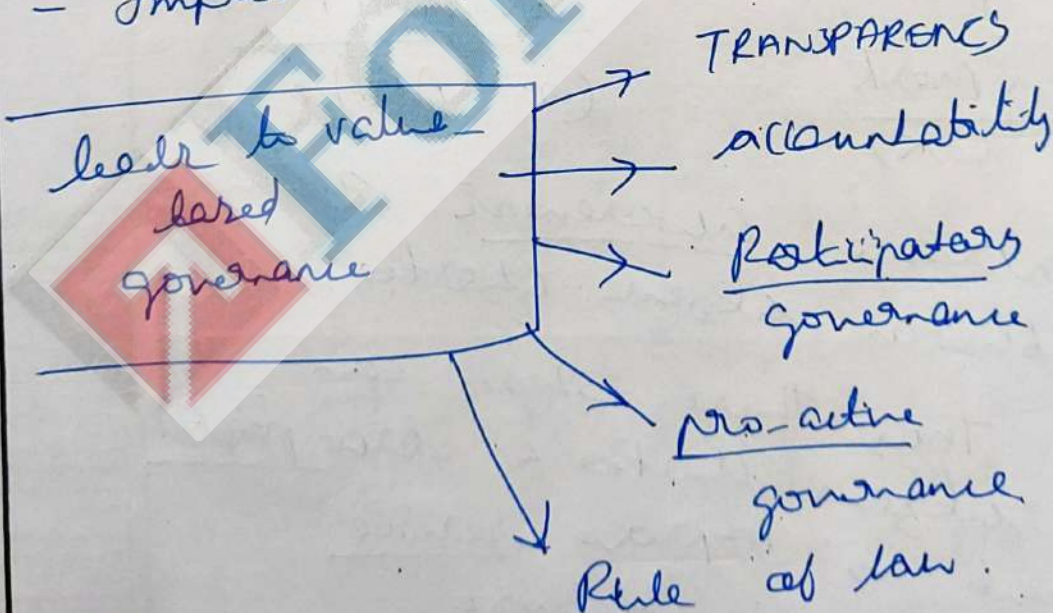 leads to value-
based
governance
TRANSPARENCY
accountability
Participatory
governance
pro-active
governance
Rule of law.